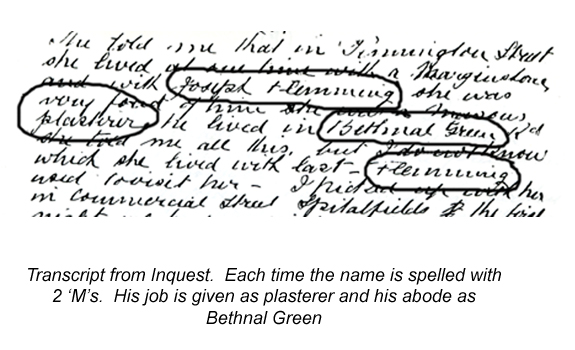 She told me that in Pennington Street
she lived at one time with a Morganstone,
and with Joseph Flemming she was
very fond of him she
plasterer, He lived in Bethnal Green
she told me all this, but I do not know
which she lived with last - Flemming
used to visit her - I picked up with her
in Commercial Street Spitalfields the first
Transcript from Inquest. Each time the name is spelled with
2 ‘M’s. His job is given as plasterer and his abode as
Bethnal Green